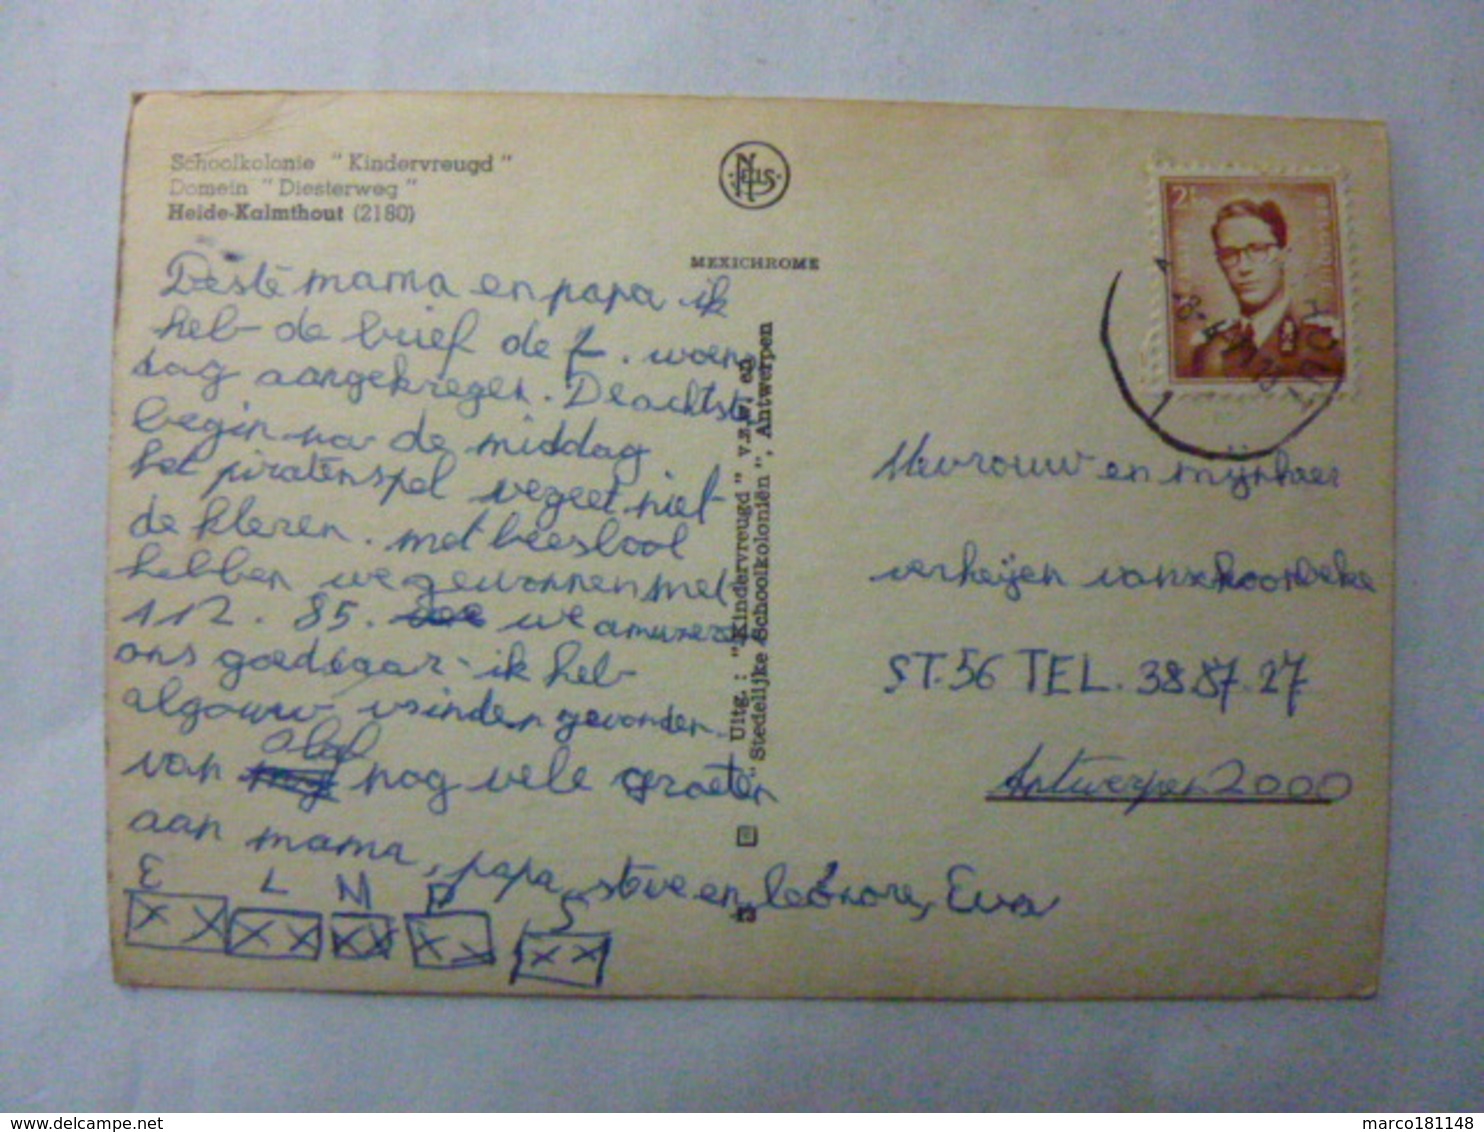 Schoolkolonie "Kindervreugd"
Domein "Diesterweg"
Heide-Kalmthout (2180)
NELS
MEXICHROME
Beste mama en papa ik
heb de brief de woens
dag aangekregen. De achtste
begin na de middag
het piratenspel vegeet niet
de kleren. met beesbool
hebben we gewonnen met
112. 85. we amuzere
ons goed daar. ik heb
algouw vrinden gevonden.
van olaf nog vele groeten
aan mama, papa, steve en leonore, Eva
E L M P S
Uitg. : "Kindervreugd" v.z.w. en
"Stedelijke Schoolkoloniën", Antwerpen
2F
Mevrouw en mijnheer
verheijen vanschoonbeke
ST. 56 TEL. 38.87.27
Antwerpen 2000
marco181148